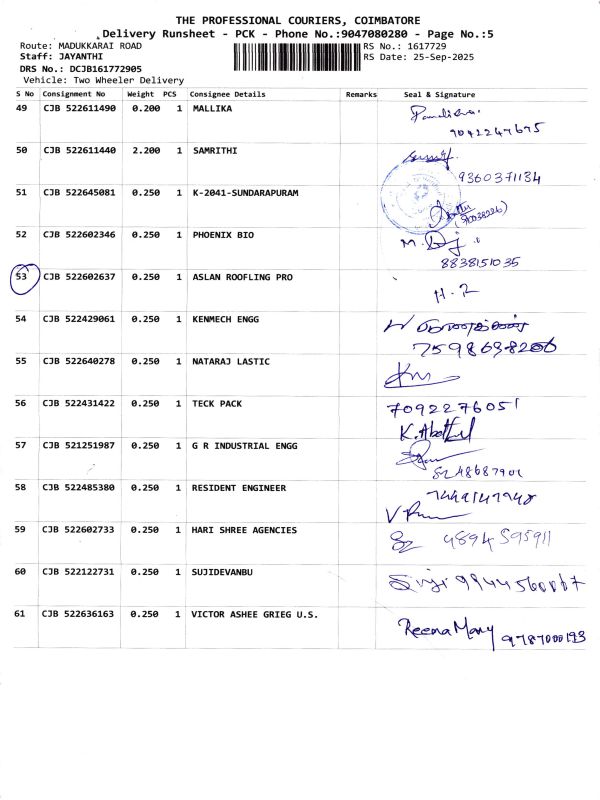 THE PROFESSIONAL COURIERS, COIMBATORE
Delivery Runsheet - PCK - Phone No.:9047080280 - Page No.:5
Route: MADUKKARAI ROAD RS No.: 1617729
Staff: JAYANTHI RS Date: 25-Sep-2025
DRS No.: DCJB161772905
Vehicle: Two Wheeler Delivery
S No Consignment No Weight PCS Consignee Details Remarks Seal & Signature
49 CJB 522611490 0.200 1 MALLIKA
50 CJB 522611440 2.200 1 SAMRITHI
9360371134
51 CJB 522645081 0.250 1 K-2041-SUNDARAPURAM
52 CJB 522602346 0.250 1 PHOENIX BIO
8838151035
53 CJB 522602637 0.250 1 ASLAN ROOFLING PRO H.R
54 CJB 522429061 0.250 1 KENMECH ENGG
55 CJB 522640278 0.250 1 NATARAJ LASTIC
56 CJB 522431422 0.250 1 TECK PACK 7092276051
57 CJB 521251987 0.250 1 G R INDUSTRIAL ENGG
58 CJB 522485380 0.250 1 RESIDENT ENGINEER
59 CJB 522602733 0.250 1 HARI SHREE AGENCIES
60 CJB 522122731 0.250 1 SUJIDEVANBU
61 CJB 522636163 0.250 1 VICTOR ASHEE GRIEG U.S.
Reena Mary